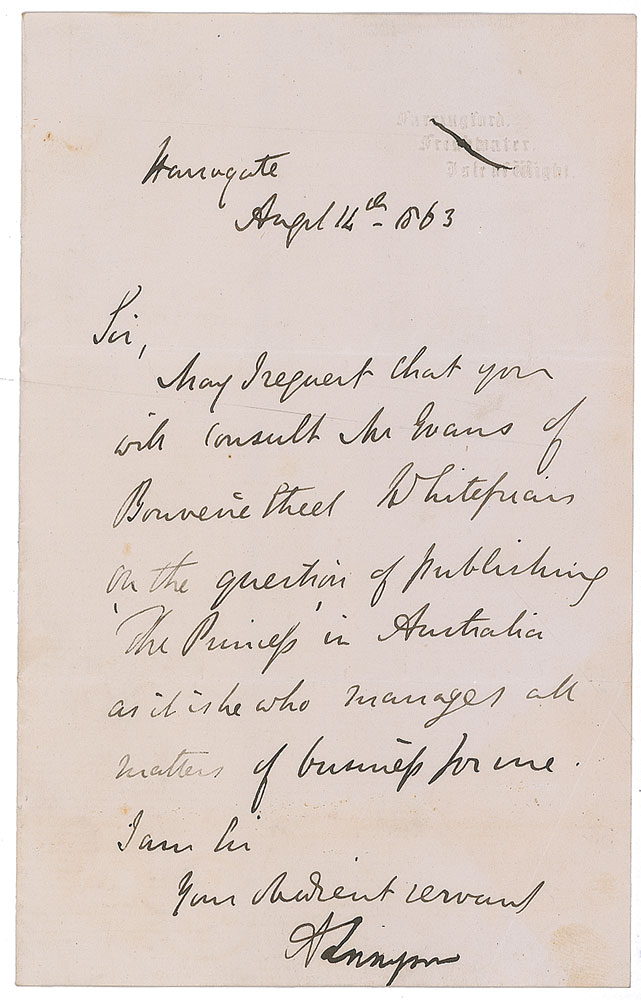 Farringford.
Freshwater.
Isle of Wight.
Harrogate
Augst 14th 1863
Sir,
May I request that you
will consult Mr Evans of
Bouverie Street Whitefriars
on the question of publishing
'The Princess' in Australia
as it is he who manages all
matters of business for me.
I am Sir
Your obedient servant
ATennyson